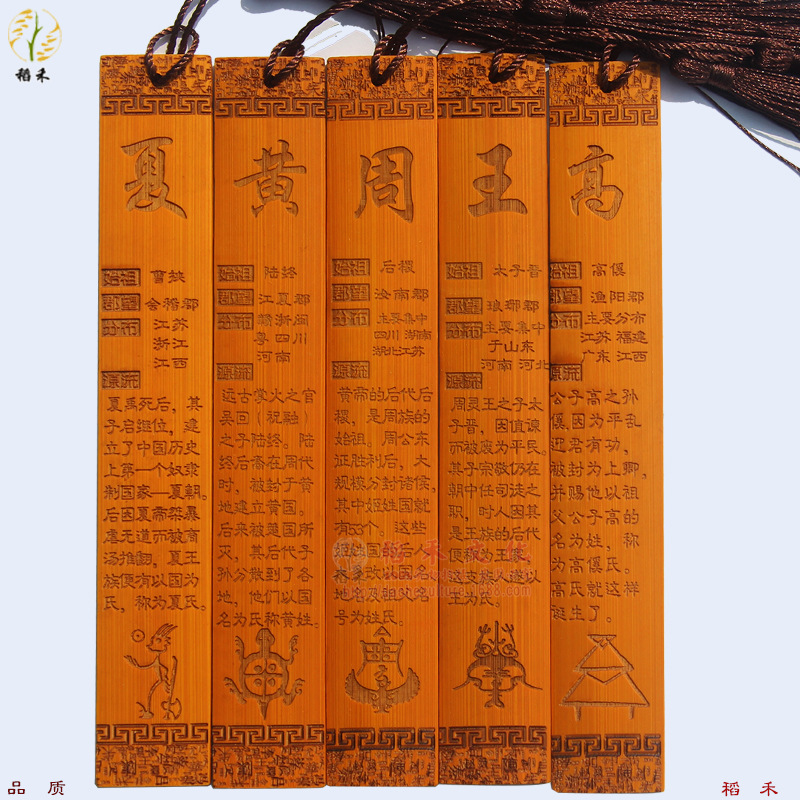 稻禾
夏
始祖
曹姎
郡望
会稽郡
分布
江苏
浙江
江西
源流
夏禹死后，其
子启继位，建
立了中国历史
上第一个奴隶
制国家—夏朝。
后因夏帝桀暴
虐无道而被商
汤推翻，夏王
族便有以国为
氏，称为夏氏。
黄
始祖
陆终
郡望
江夏郡
分布
赣浙闽
粤四川
河南
源流
远古掌火之官
吴回（祝融）
之子陆终。陆
终后裔在周代
时，被封于黄
地建立黄国。
后来被楚国所
灭，其后代子
孙分散到了各
地，他们以国
名为氏称黄姓。
周
始祖
后稷
郡望
汝南郡
分布
主要集中
四川 湖南
湖北江苏
源流
黄帝的后代后
稷，是周族的
始祖。周公东
征胜利后，大
规模分封诸侯，
其中姬姓国就
有53个，这些
姬姓国的后人
大多改以国名
地名及祖先名
号为姓氏。
王
始祖
太子晋
郡望
琅琊郡
分布
主要集中
于山东
河南 河北
源流
周灵王之子太
子晋，因直谏
而被废为平民。
其子宗敬仍在
朝中任司徒之
职，时人因其
是王族的后代
便称为王家，
这支族人遂以
王为氏。
高
始祖
高傒
郡望
渔阳郡
分布
主要分布
江苏 福建
广东 江西
源流
公子高之孙
傒，因为平乱
迎君有功，
被封为上卿，
并赐他以祖
父公子高的
名为姓，称
为高傒氏。
高氏就这样
诞生了。
品 质
稻 禾